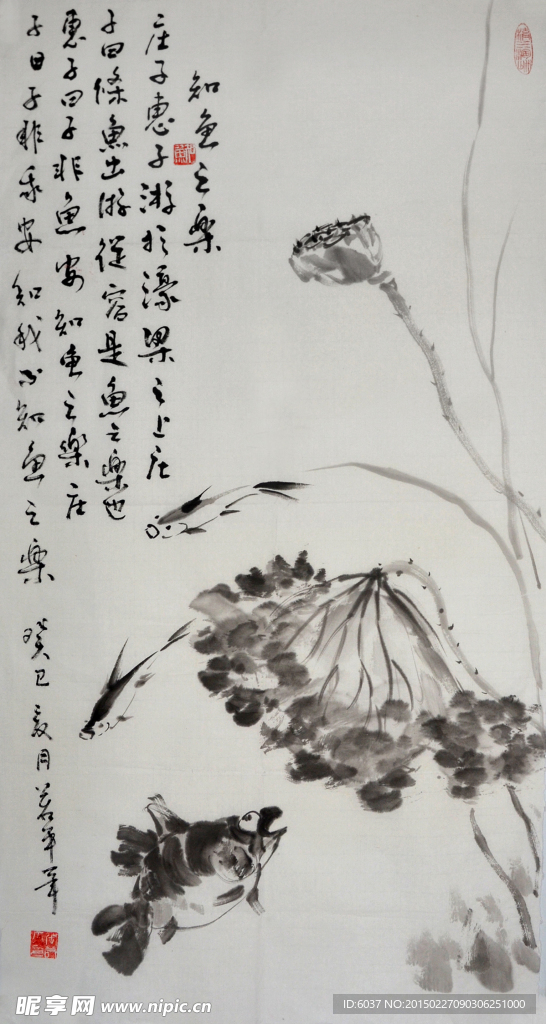 知鱼之樂
庄子惠子游於濠梁之上庄
子曰鯈魚出游從容是魚之樂也
惠子曰子非魚安知鱼之樂庄
子曰子非我安知我不知鱼之樂
癸巳夏月
昵享网 www.nipic.cn
ID:6037 NO:20150227090306251000